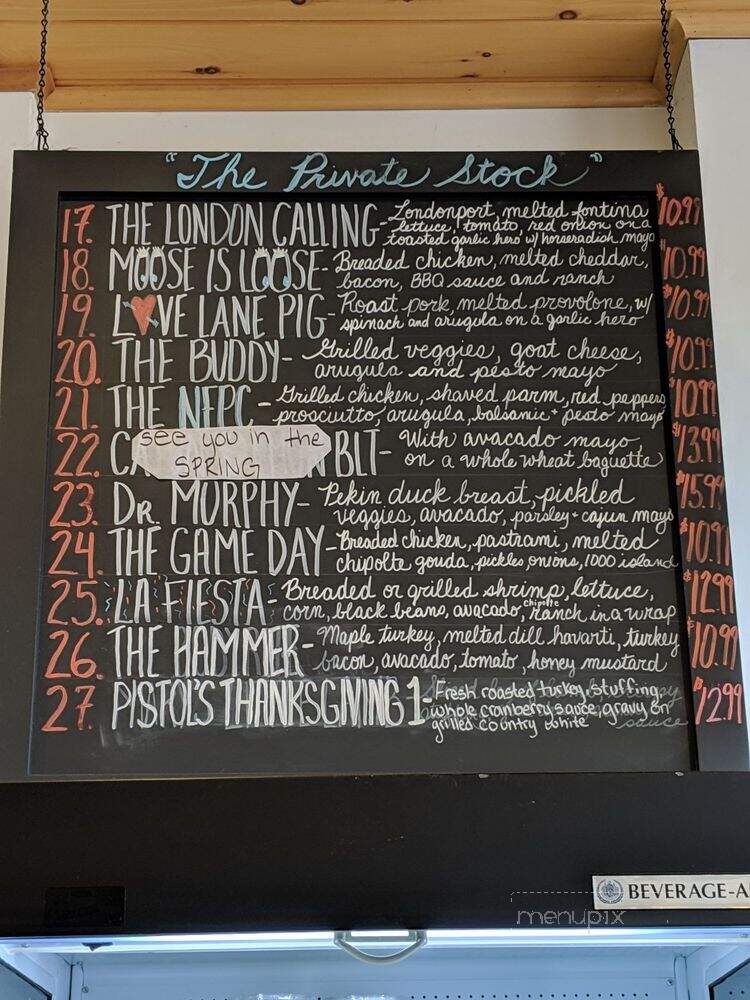 "The Private Stock"
17. THE LONDON CALLING- Londonport, melted fontina $10.99
lettuce, tomato, red onion on a
toasted garlic hero w/ horseradish mayo
18. MOOSE IS LOOSE- Breaded chicken, melted cheddar, $10.99
bacon, BBQ sauce and ranch
19. LOVE LANE PIG- Roast pork, melted provolone, w/ $10.99
spinach and arugula on a garlic hero
20. THE BUDDY- Grilled veggies, goat cheese, $10.99
arugula and pesto mayo
21. THE NFPC- Grilled chicken, shaved parm, red peppers $10.99
prosciutto, arugula, balsamic + pesto mayo
22. BLT- With avacado mayo, $13.99
on a whole wheat baguette
see you in the
SPRING
23. DR. MURPHY- Pekin duck breast, pickled $15.99
veggies, avacado, parsley + cajun mayo
24. THE GAME DAY- Breaded chicken, pastrami, melted $10.99
chipolte gouda, pickles, onions, 1000 island
25. LA FIESTA- Breaded or grilled shrimp, lettuce, $12.99
corn, black beans, avacado, chipolte ranch in a wrap
26. THE HAMMER- Maple turkey, melted dill havarti, turkey $10.99
bacon, avacado, tomato, honey mustard
27. PISTOL'S THANKSGIVING 1- Fresh roasted turkey, stuffing, $12.99
whole cranberry sauce, gravy on
grilled country white
sauce
BEVERAGE-A
menupix